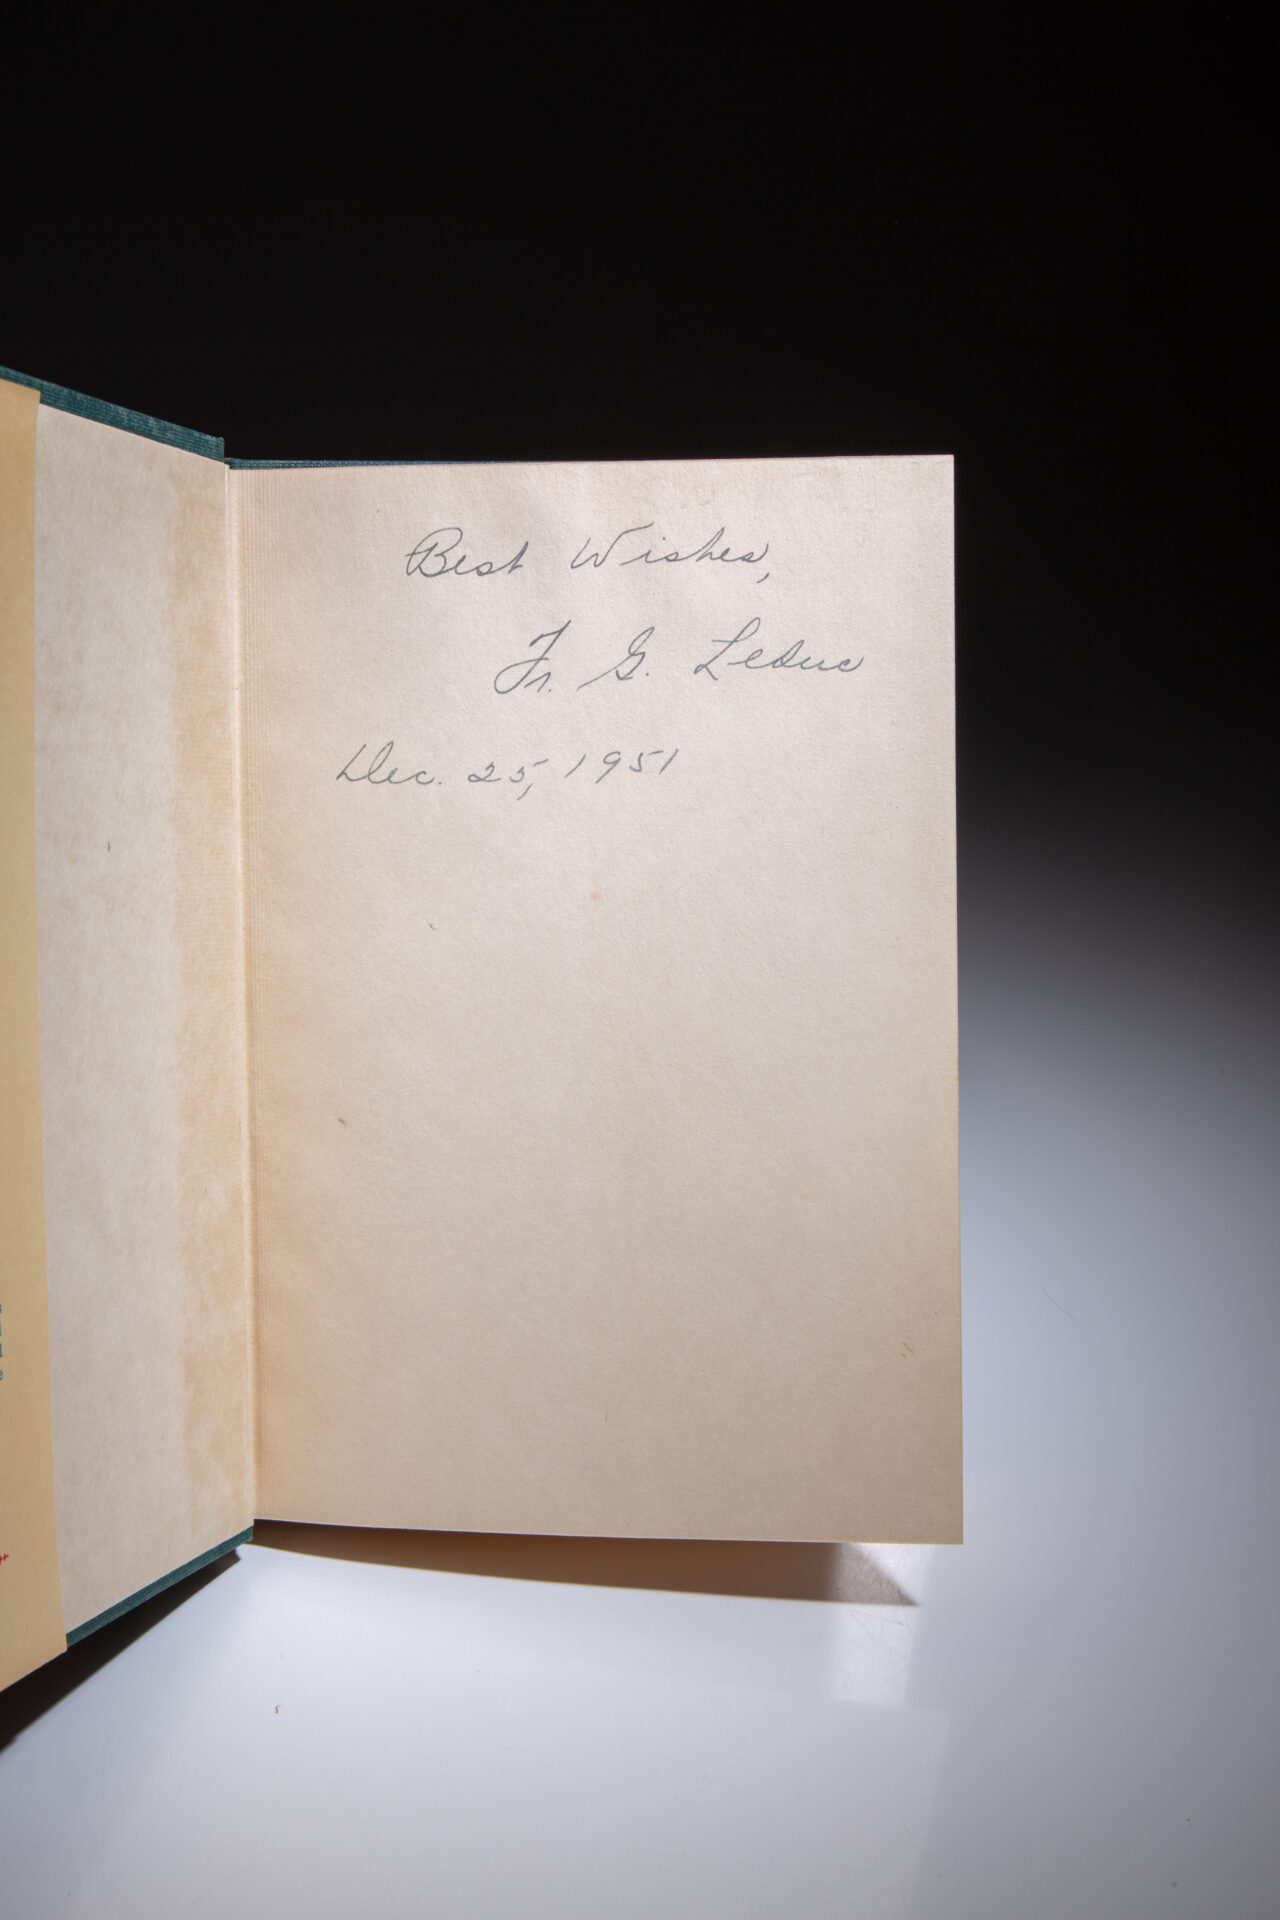 Best Wishes,
Fr. G. LeDuc
Dec. 25, 1951